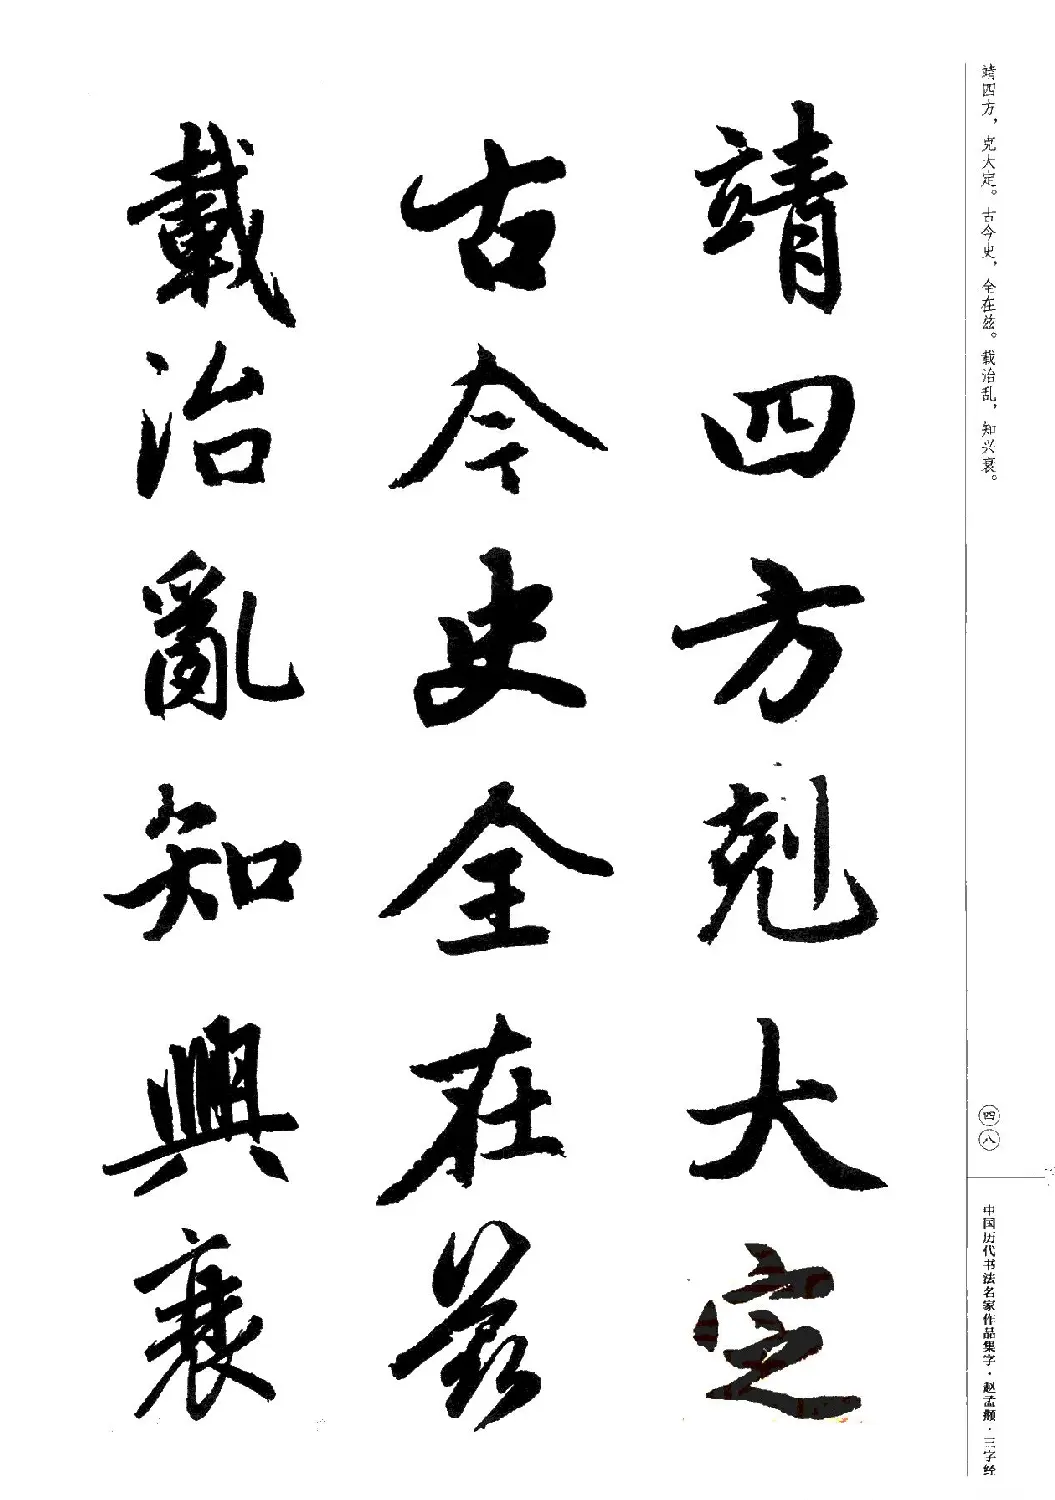 靖四方，克大定。古今史，全在兹。载治乱，知兴衰。
靖四方剋大定
古今史全在茲
載治亂知興衰
四八
中国历代书法名家作品集字·赵孟頫·三字经